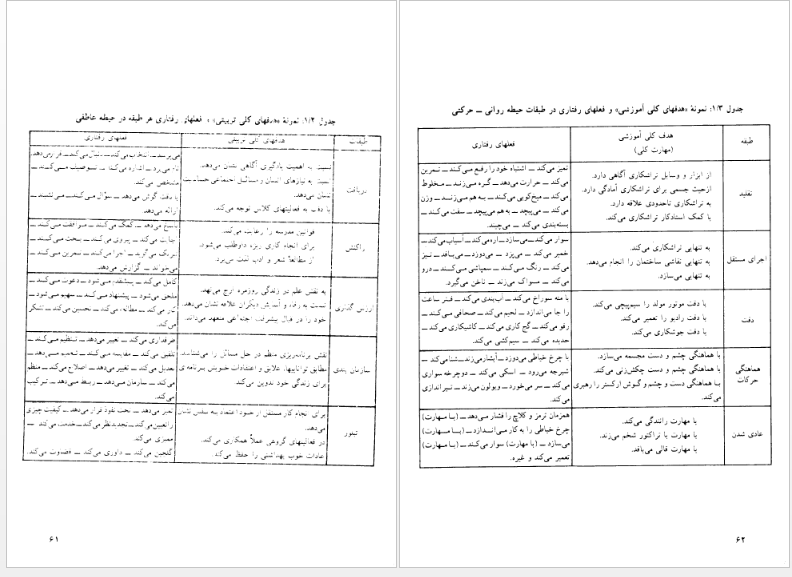 جدول ۱/۲. نمونهٔ «هدفهای کلی تربیتی» و فعلهای رفتاری هر طبقه در حیطه عاطفی
طبقات
هدفهای کلی تربیتی
فعلهای رفتاری
دریافت
نسبت به اهمیت یادگیری آگاهی نشان می‌دهد.
نسبت به نیازهای انسان و مسائل اجتماعی حساسیت
نشان می‌دهد.
با دقت به فعالیتهای کلاس توجه می‌کند.
مشخص می‌کند.
با دقت گوش می‌دهد ـ سؤال می‌کند ـ می‌نشیند ـ
ارائه می‌دهد
واکنش
قوانین مدرسه را رعایت می‌کند.
برای انجام کاری ویژه داوطلب می‌شود.
از مطالعهٔ شعر و ادب لذت می‌برد.
پاسخ می‌دهد ـ کمک می‌کند ـ موافقت می‌کند ـ
پیروی می‌کند ـ بحث می‌کند ـ
تبریک می‌گوید ـ اجرا می‌کند ـ تمرین می‌کند ـ
می‌خواند ـ گزارش می‌دهد
ارزش گذاری
به نقش علم در زندگی روزمره ارج می‌نهد.
نسبت به رفاه و آسایش دیگران علاقه نشان می‌دهد.
خود را در قبال پیشرفت اجتماعی متعهد می‌داند.
کامل می‌کند ـ پیشقدم می‌شود ـ دعوت می‌کند ـ
ملحق می‌شود ـ پیشنهاد می‌کند ـ سهیم می‌شود ـ
کار می‌کند ـ مطالعه می‌کند ـ تحسین می‌کند ـ
می‌کند.
سازمان بندی
نقش برنامه‌ریزی منظم در حل مسائل را می‌شناسد.
مطابق تواناییها، علایق و اعتقادات خویش برنامه‌ای
برای زندگی خود تدوین می‌کند.
طرفداری می‌کند ـ تغییر می‌دهد ـ تنظیم می‌کند ـ
تلفیق می‌کند ـ مقایسه می‌کند ـ تعمیم می‌دهد ـ
تعدیل می‌کند ـ تغییر می‌دهد ـ اصلاح می‌کند ـ منظم
می‌کند ـ سازمان می‌دهد ـ ربط می‌دهد ـ ترکیب
می‌کند.
تبلور
برای انجام کار مستقل از خود اعتماد به نفس نشان
می‌دهد.
در فعالیتهای گروهی عملاً همکاری می‌کند.
عادات خوب بهداشتی را حفظ می‌کند.
تمیز می‌دهد ـ تحت نفوذ قرار می‌دهد ـ کیفیت چیزی
را تعیین می‌کند ـ تجدیدنظر می‌کند ـ خدمت می‌کند ـ
ممیزی می‌کند
ـ داوری می‌کند ـ قضاوت می‌کند.
۶۱
جدول ۱/۳: نمونهٔ «هدفهای کلی آموزشی» و فعلهای رفتاری در طبقات حیطه روانی ـ حرکتی
طبقه
هدف کلی آموزشی
(مهارت کلی)
فعلهای رفتاری
تقلید
از ابزار و وسایل تراشکاری آگاهی دارد.
ازحیث جسمی برای تراشکاری آمادگی دارد.
به تراشکاری تاحدودی علاقه دارد.
با کمک استادکار تراشکاری می‌کند.
تمیز می‌کند ـ اشتباه خود را رفع می‌کند ـ تمرین
می‌کند ـ حرارت می‌دهد ـ گره می‌زند ـ مخلوط
می‌کند ـ میخ‌کوبی می‌کند ـ به هم می‌زند ـ وزن
می‌کند ـ می‌پیچد ـ به هم می‌پیچد ـ سفت می‌کند ـ
بسته‌بندی می‌کند ـ می‌چیند.
اجرای مستقل
به تنهایی تراشکاری می‌کند.
به تنهایی نقاشی ساختمان را انجام می‌دهد.
به تنهایی می‌سازد.
سوار می‌کند ـ می‌سازد ـ اره می‌کند ـ آسیاب می‌کند ـ
خمیر می‌کند ـ می‌پزد ـ می‌دوزد ـ می‌بافد ـ تیز
می‌کند ـ رنگ می‌کند ـ سمپاشی می‌کند ـ درو
می‌کند ـ مسواک می‌زند ـ ناخن می‌گیرد.
دقت
با دقت موتور مولد را سیم‌پیچی می‌کند.
با دقت رادیو را تعمیر می‌کند.
با دقت جوشکاری می‌کند.
با مته سوراخ می‌کند ـ آب‌بندی می‌کند ـ فنر ساعت
را جا می‌اندازد ـ لحیم می‌کند ـ صحافی می‌کند ـ
رفو می‌کند ـ گچ کاری می‌کند ـ کاشیکاری می‌کند ـ
حدیده می‌کند ـ سیم‌کشی می‌کند.
هماهنگی
حرکات
با هماهنگی چشم و دست مجسمه می‌سازد.
با هماهنگی چشم و دست چکش‌زنی می‌کند.
با هماهنگی دست و چشم و گوش ارکستر را رهبری
می‌کند.
با چرخ خیاطی می‌دوزد ـ آبشار می‌زند ـ شنا می‌کند ـ
شیرجه می‌رود ـ اسکی می‌کند ـ دوچرخه سواری
می‌کند ـ سر می‌خورد ـ ویولون می‌زند ـ تیراندازی
می‌کند.
عادی شدن
با مهارت رانندگی می‌کند.
با مهارت با تراکتور شخم می‌زند.
با مهارت قالی می‌بافد.
همزمان ترمز و کلاچ را فشار می‌دهد ـ (با مهارت)
چرخ خیاطی را به کار می‌اندازد ـ (با مهارت)
می‌سازد ـ (با مهارت) سوار می‌کند ـ (با مهارت)
تعمیر می‌کند و غیره.
۶۲